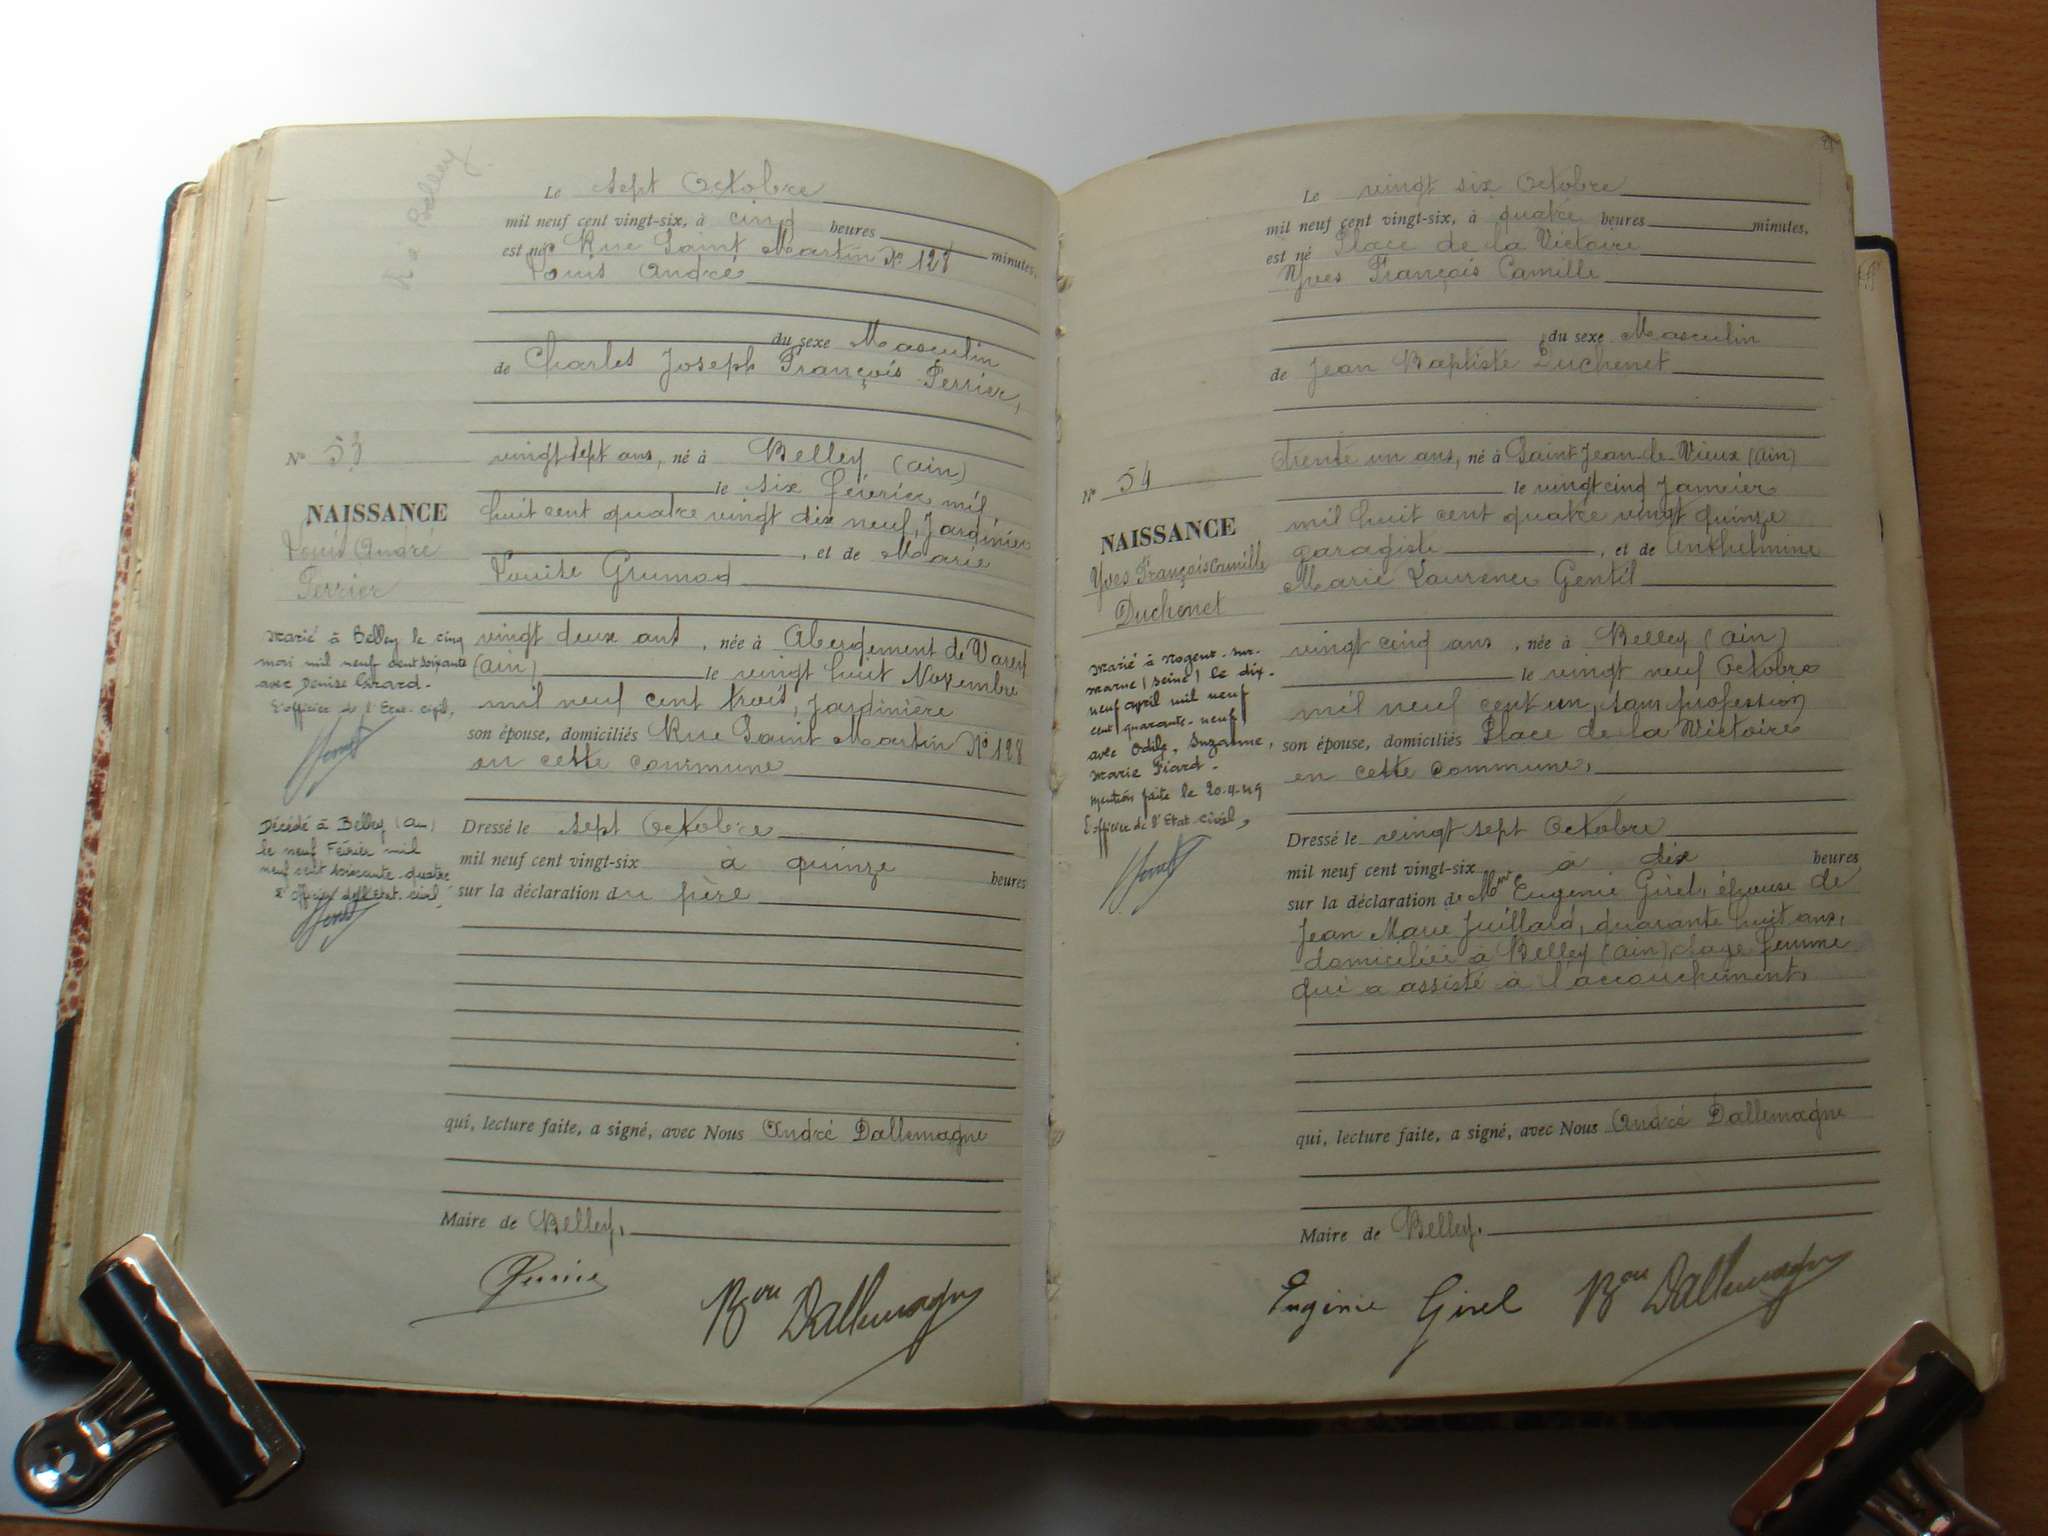 Belley
Le sept Octobre
mil neuf cent vingt-six, à cinq heures
minutes,
est né Rue Saint Martin N° 128
Louis André
du sexe Masculin
de Charles Joseph François Perrier,
N° 53
vingt sept ans, né à Belley (ain)
le six février mil
NAISSANCE
huit cent quatre vingt dix neuf, Jardinier
Louis André
, et de Marie
Perrier
Louise Grumod
Marié à Belley le cinq
mai mil neuf cent soixante
avec Denise Carard.
L'officier de l'Etat civil,
vingt deux ans, née à Abergement de Varey
(ain) le vingt huit Novembre
mil neuf cent trois, Jardinière
son épouse, domiciliés Rue Saint Martin N° 128
en cette commune
Décédé à Belley (Ain)
le neuf Février mil
neuf cent soixante quatre
L'officier de l'Etat civil,
Dressé le sept Octobre
mil neuf cent vingt-six à quinze heures
sur la déclaration du père
qui, lecture faite, a signé, avec Nous André Dallemagne
Maire de Belley.
Perrier
Bon Dallemagne
Le vingt six Octobre
mil neuf cent vingt-six, à quatre heures minutes,
est né Place de la Victoire
Yves François Camille
du sexe Masculin
de Jean Baptiste Duchenet
N° 54
trente un ans, né à Saint Jean-le-Vieux (ain)
le vingt cinq Janvier
NAISSANCE
mil huit cent quatre vingt quinze
Yves François Camille
garagiste, et de Anthelmine
Duchenet
Marie Laurence Gentil
Marié à Nogent-sur-
Marne (Seine) le dix-
neuf avril mil neuf
cent quarante-neuf
avec Odile, Suzanne,
Marie Piard.
Mention faite le 20-4-49
L'officier de l'Etat civil,
vingt cinq ans, née à Belley (ain)
le vingt neuf Octobre
mil neuf cent un, sans profession
son épouse, domiciliés Place de la Victoire
en cette commune,
Dressé le vingt sept Octobre
mil neuf cent vingt-six à dix heures
sur la déclaration de Mme Eugenie Girel, épouse de
Jean Marie Juillard, quarante huit ans,
domiciliée à Belley (ain) sage femme
qui a assisté à l'accouchement,
qui, lecture faite, a signé, avec Nous André Dallemagne
Maire de Belley.
Eugénie Girel
Bon Dallemagne